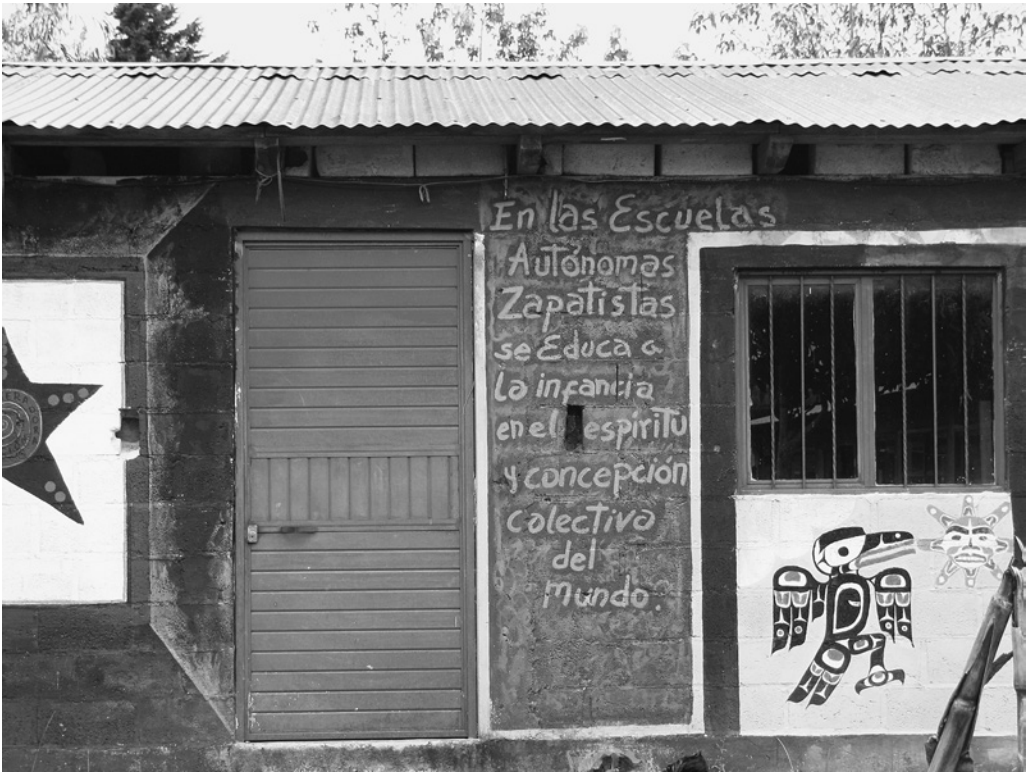 En las Escuelas
Autónomas
Zapatistas
se Educa a
la infancia
en el espiritu
y concepción
colectiva
del
mundo.